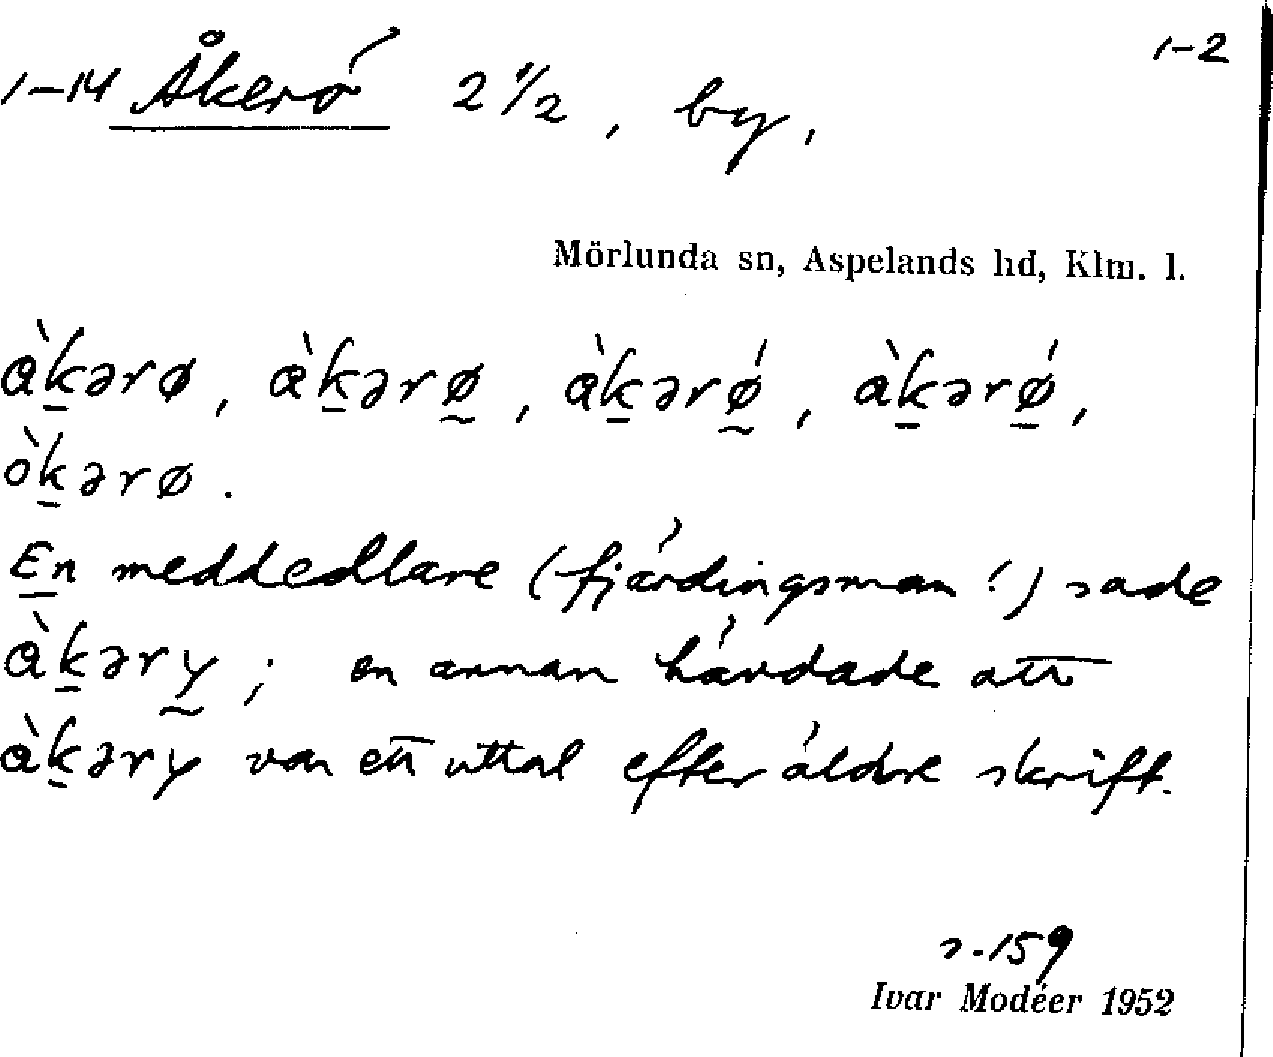 1-2
1-14 Åkerö 2 1/2, by,
Mörlunda sn, Aspelands hd, Klm. l.
ɑ̀k̠ərø, ɑ̀k̠ərø̰, ɑ̀k̠ərǿ̰, ɑ̀k̠ərǿ̠,
òk̠ərø.
En meddedlare (fjärdingsman!) sade
ɑ̀k̠əry̰; en annan hävdade att
ɑ̀k̠əry var ett uttal efter äldre skrift.
s. 159
Ivar Modéer 1952